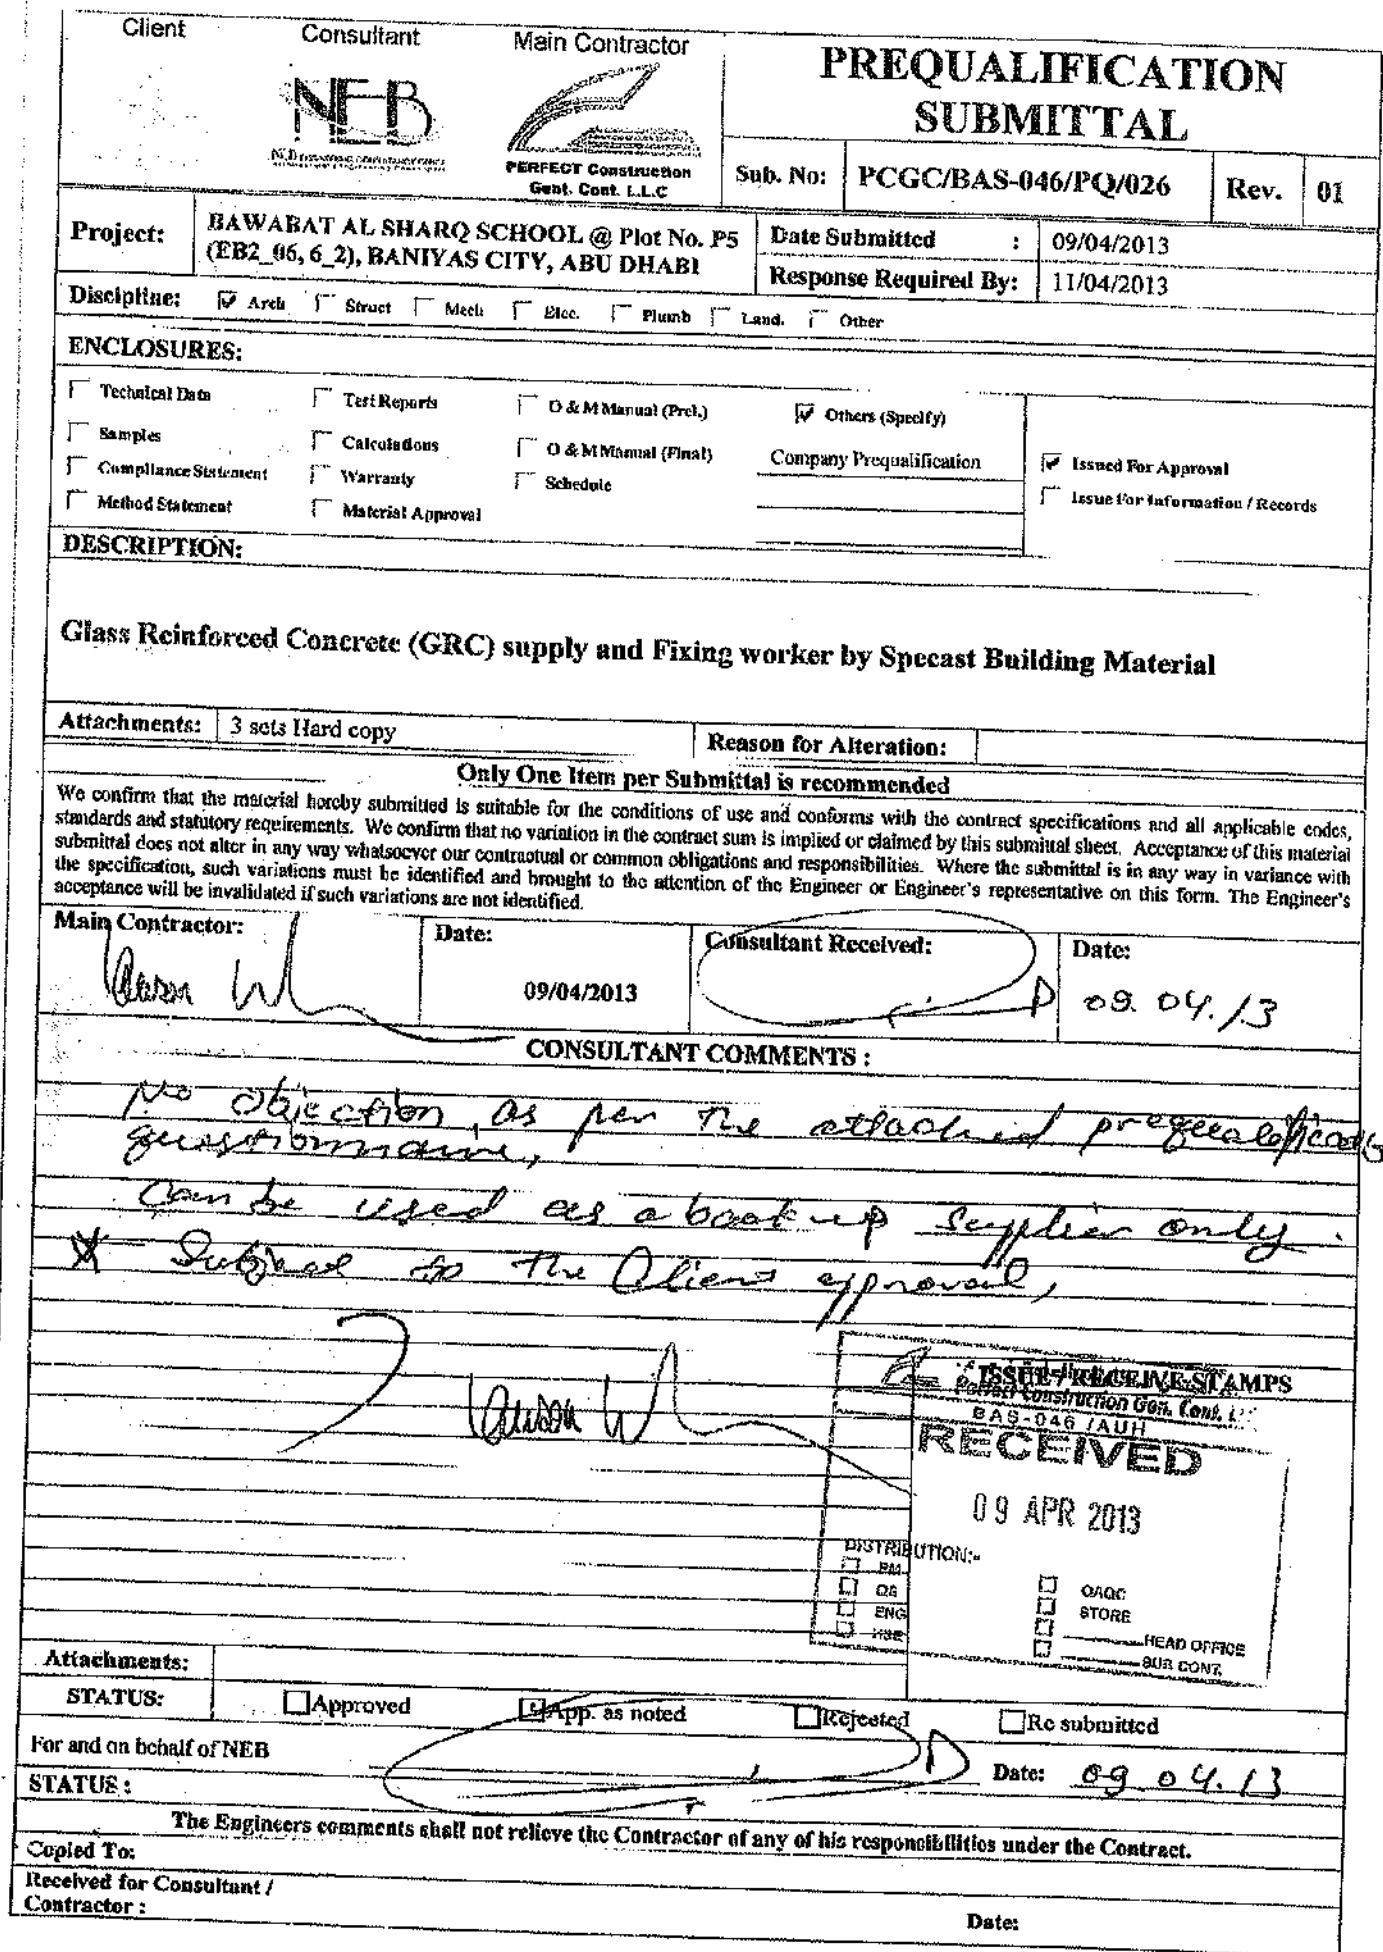 Client
Consultant
Main Contractor
NEB
PERFECT Construction
Genl. Cont. L.L.C
PREQUALIFICATION
SUBMITTAL
Sub. No: PCGC/BAS-046/PQ/026 Rev. 01
Project: BAWABAT AL SHARQ SCHOOL @ Plot No. P5
(EB2_06, 6_2), BANIYAS CITY, ABU DHABI
Date Submitted : 09/04/2013
Response Required By: 11/04/2013
Discipline: Arch Struct Mech Elec. Plumb Land. Other
ENCLOSURES:
Technical Data Test Reports O & M Manual (Prel.) Others (Specify)
Samples Calculations O & M Manual (Final) Company Prequalification Issued For Approval
Compliance Statement Warranty Schedule Issue For Information / Records
Method Statement Material Approval
DESCRIPTION:
Glass Reinforced Concrete (GRC) supply and Fixing worker by Specast Building Material
Attachments: 3 sets Hard copy Reason for Alteration:
Only One Item per Submittal is recommended
We confirm that the material hereby submitted is suitable for the conditions of use and conforms with the contract specifications and all applicable codes,
standards and statutory requirements. We confirm that no variation in the contract sum is implied or claimed by this submittal sheet. Acceptance of this material
submittal does not alter in any way whatsoever our contractual or common obligations and responsibilities. Where the submittal is in any way in variance with
the specification, such variations must be identified and brought to the attention of the Engineer or Engineer's representative on this form. The Engineer's
acceptance will be invalidated if such variations are not identified.
Main Contractor: Date: Consultant Received: Date:
09/04/2013 09.04.13
CONSULTANT COMMENTS :
No objection, as per the attached prequalification
questionnaire,
Can be used as a back up supplier only.
* Subject to the Client approval,
ISSUE / RECEIVE STAMPS
Perfect Construction Gen. Cont.
BAS-046 /AUH
RECEIVED
09 APR 2013
DISTRIBUTION:-
PM
QS QAQC
ENG STORE
HSE HEAD OFFICE
SUB CONT.
Attachments:
STATUS: Approved App. as noted Rejected Re submitted
For and on behalf of NEB Date: 09.04.13
STATUS :
The Engineers comments shall not relieve the Contractor of any of his responsibilities under the Contract.
Copied To:
Received for Consultant /
Contractor : Date: